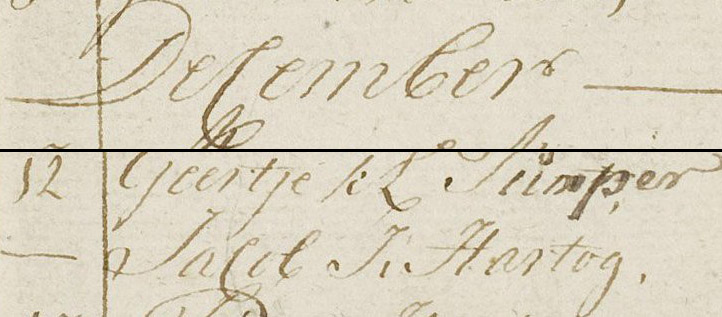 December —
12 Geertje k: L Pümper
— Jacob J: Hartog.